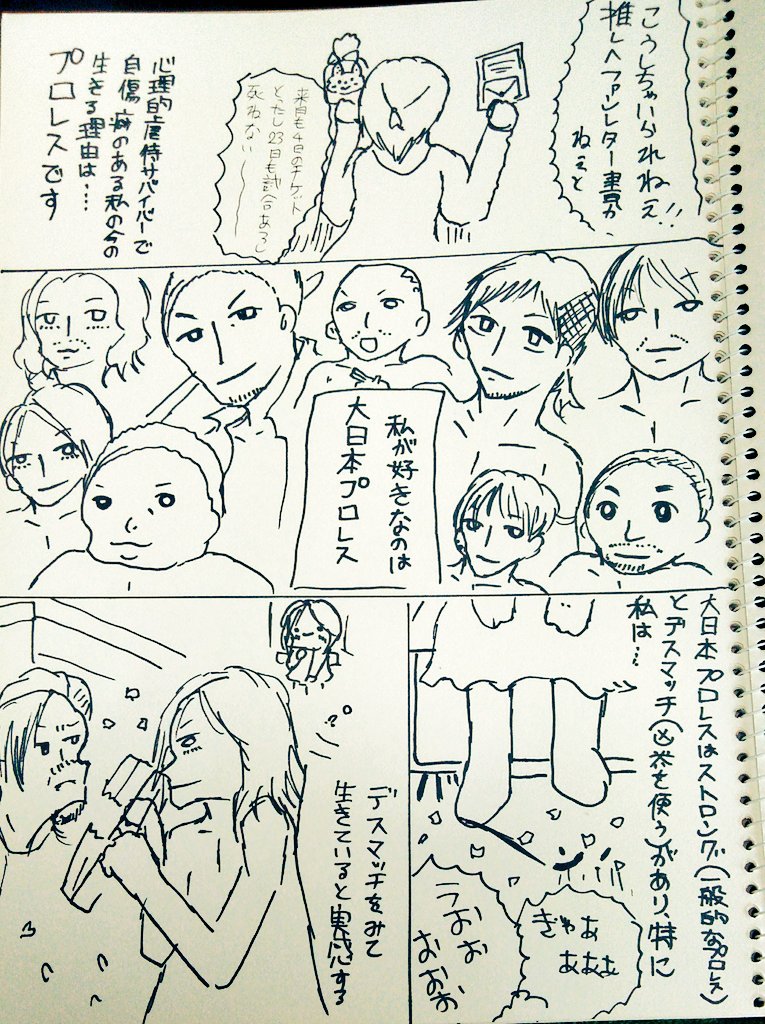 こうしちゃいられねえ!!
推しへファンレター書か
ねぇと
来月も4日のチケット
とったし23日も試合あるし
死ねない〜
心理的虐待サバイバーで
自傷癖のある私の今の
生きる理由は…
プロレスです
私が好きなのは
大日本プロレス
大日本プロレスはストロング(一般的なプロレス)
とデスマッチ(凶器を使う)があり、特に
私は…
ぎゃあ
あああ
うおお
おおお
デスマッチをみて
生きていると実感する